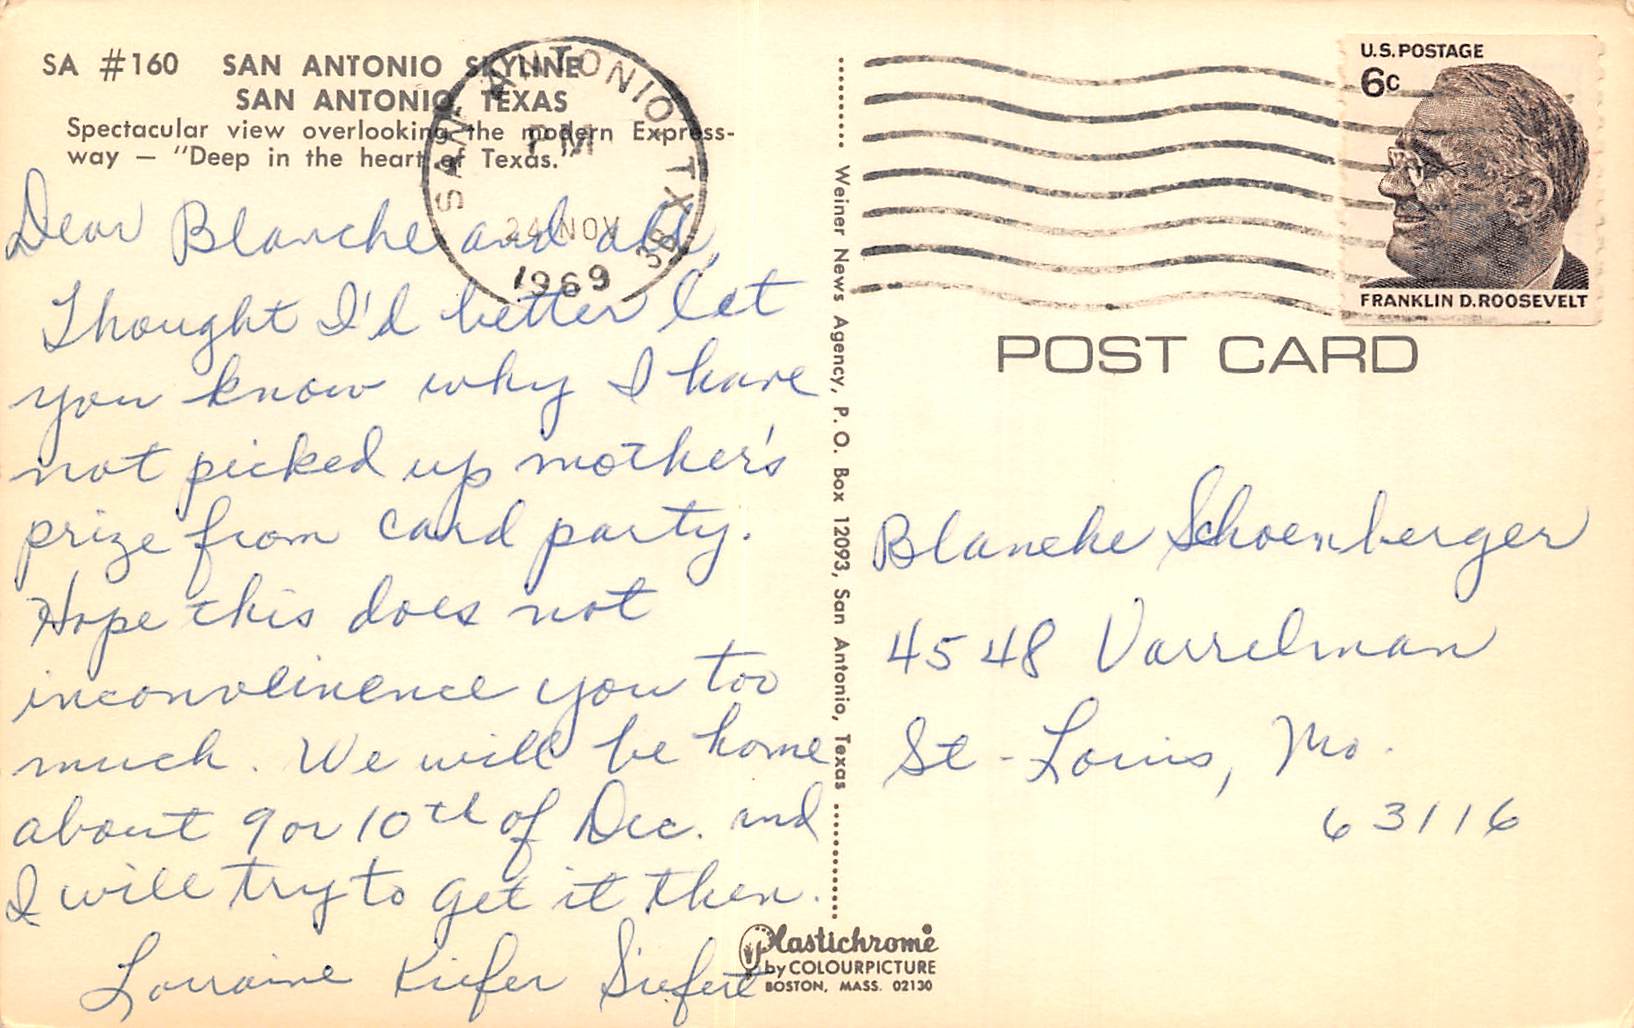 SA #160 SAN ANTONIO SKYLINE
SAN ANTONIO, TEXAS
Spectacular view overlooking the modern Express-
way — "Deep in the heart of Texas."
SAN ANTONIO TX
PM
24 NOV
1969
Dear Blanche and all,
Thought I'd better let
you know why I have
not picked up mother's
prize from card party.
Hope this does not
inconveinence you too
much. We will be home
about 9 or 10th of Dec. and
I will try to get it then.
Lorraine Kiefer Siefert
Weiner News Agency, P. O. Box 12093, San Antonio, Texas
Plastichrome
by COLOURPICTURE
BOSTON, MASS. 02130
U.S. POSTAGE
6c
FRANKLIN D. ROOSEVELT
POST CARD
Blanche Schoenberger
4548 Varrelman
St-Louis, Mo.
63116